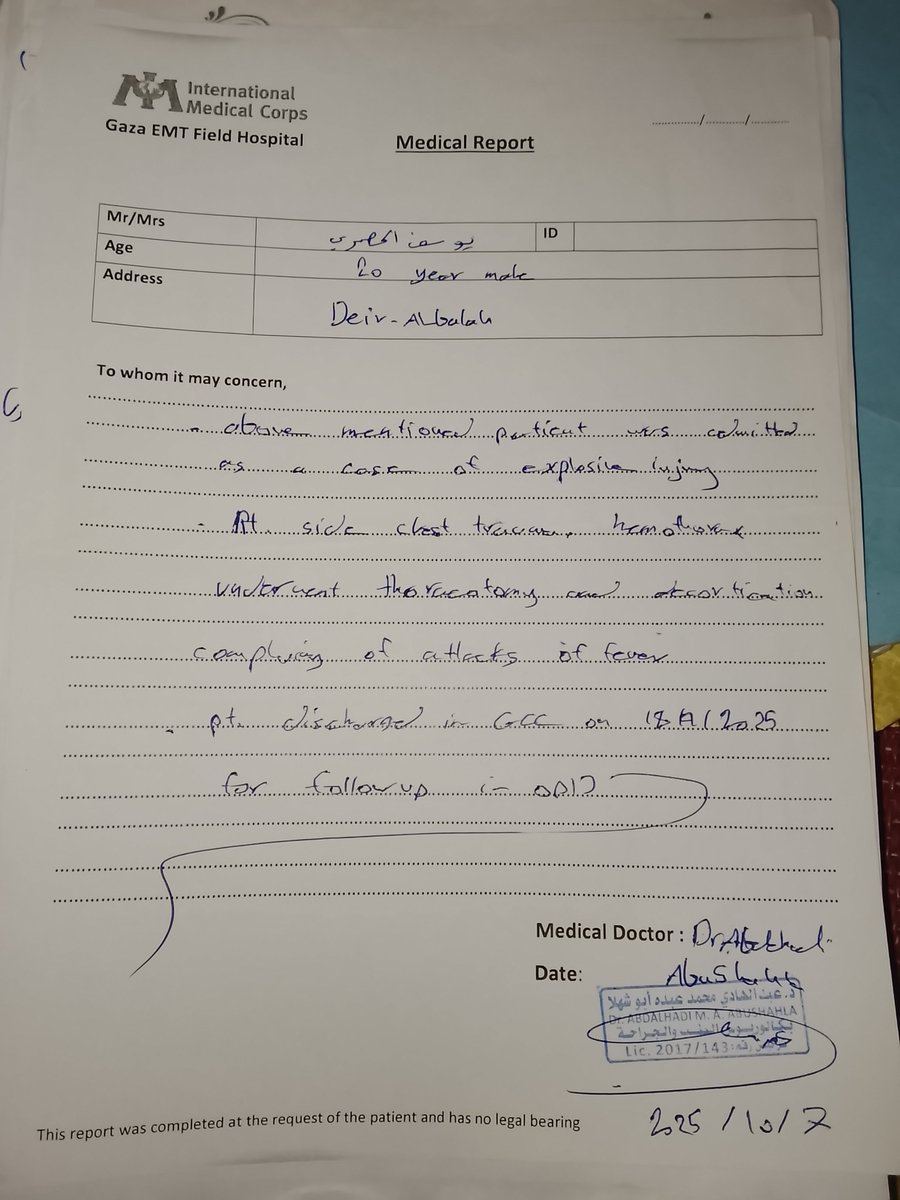 International
Medical Corps
Gaza EMT Field Hospital
............/........../..........
Medical Report
Mr/Mrs يوسف المصري ID
Age 20 year male
Address Deir-Albalah
To whom it may concern,
above mentioned patient was admitted
as a case of explosive injury
Rt. side chest trauma, hemothorax
underwent thoracotomy and
of attacks of fever
pt. discharged in GCC on 2025
for follow up in OPD
Medical Doctor :
Date: AbuShahla
د. عبد الهادي محمد عبده أبو شهلا
Dr. ABDALHADI M. A. ABUSHAHLA
بكالوريوس الطب والجراحة
Lic. 2017/143:
2025/10/7
This report was completed at the request of the patient and has no legal bearing